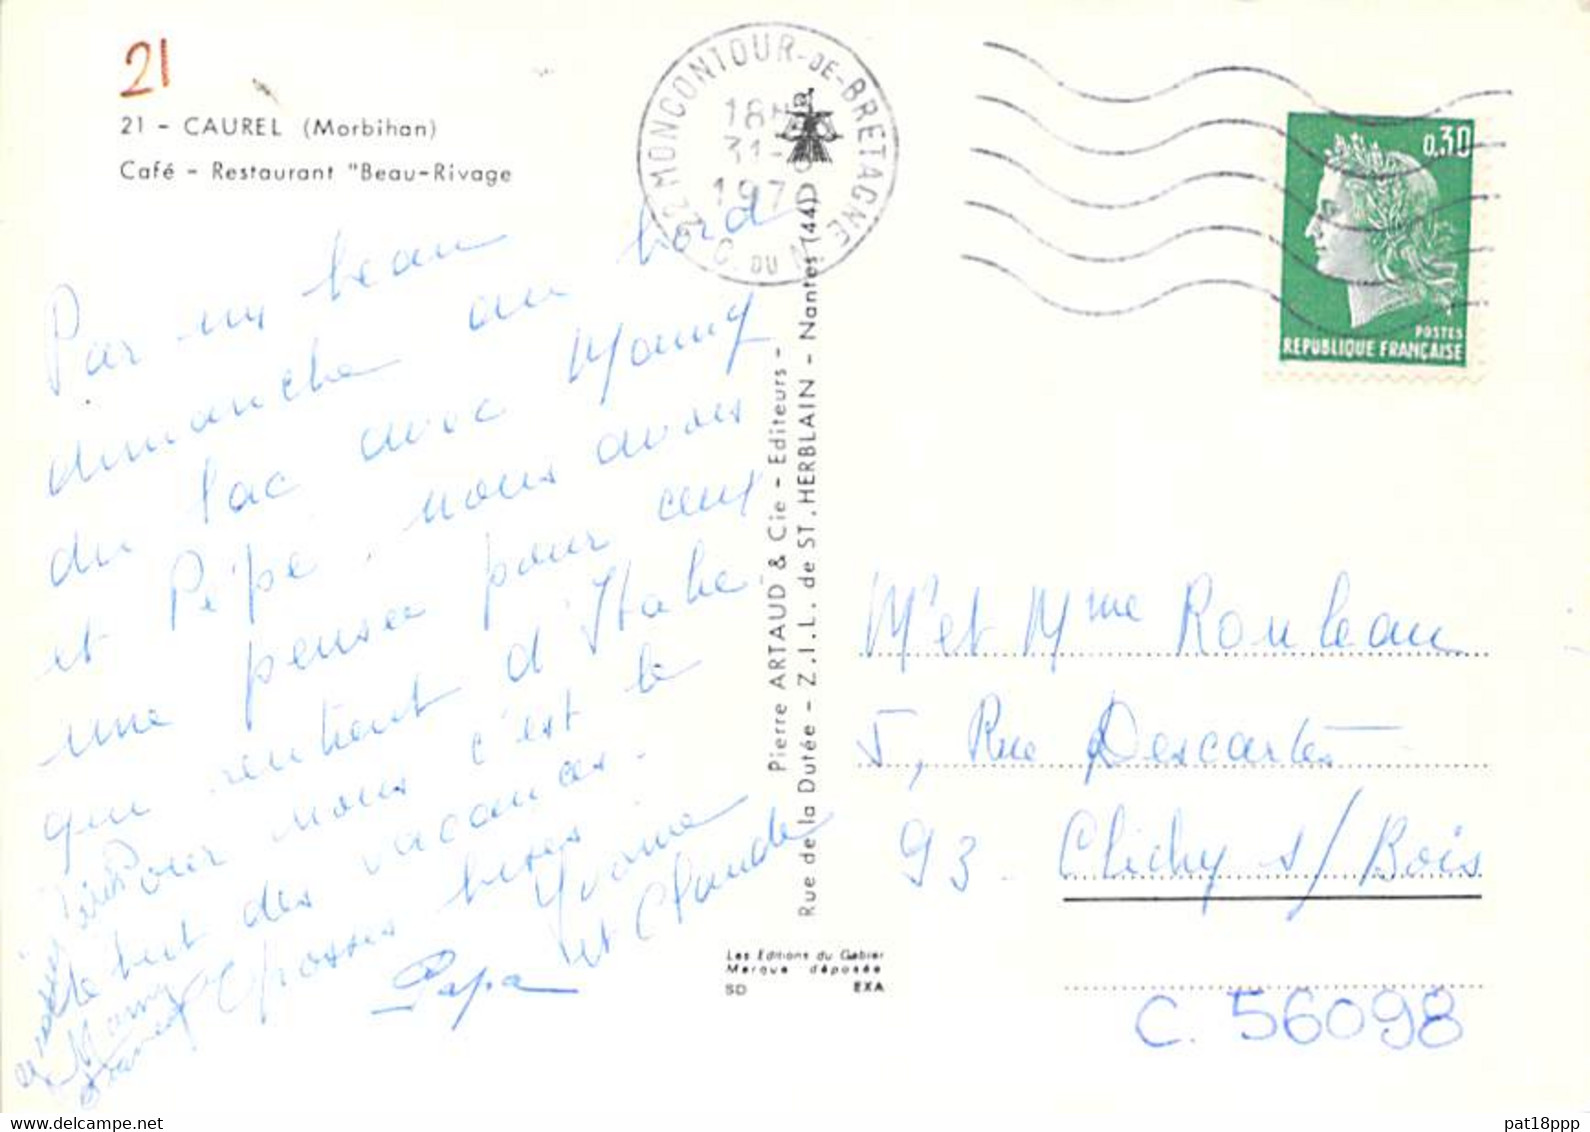 21
21 - CAUREL (Morbihan)
Café - Restaurant "Beau-Rivage
Par un beau
dimanche au bord
du lac avec Mamy
et Pépé, nous avons
une pensée pour ceux
qui rentrent d'Italie
Pour nous c'est le
début des vacances.
Grosses bises
Yvonne
et Claude
Papa
Mamy
22 MONCONTOUR-DE-BRETAGNE
18H
31-
197
C. DU N
Pierre ARTAUD & Cie - Editeurs -
Rue de la Dutée - Z.I.L. de ST. HERBLAIN - Nantes (44)
Les Editions du Gabier
Marque déposée
SD EXA
0,30
POSTES
REPUBLIQUE FRANÇAISE
Mr et Mme Rouleau
5, Rue Descartes
93 - Clichy s/Bois
C. 56098
pat18ppp